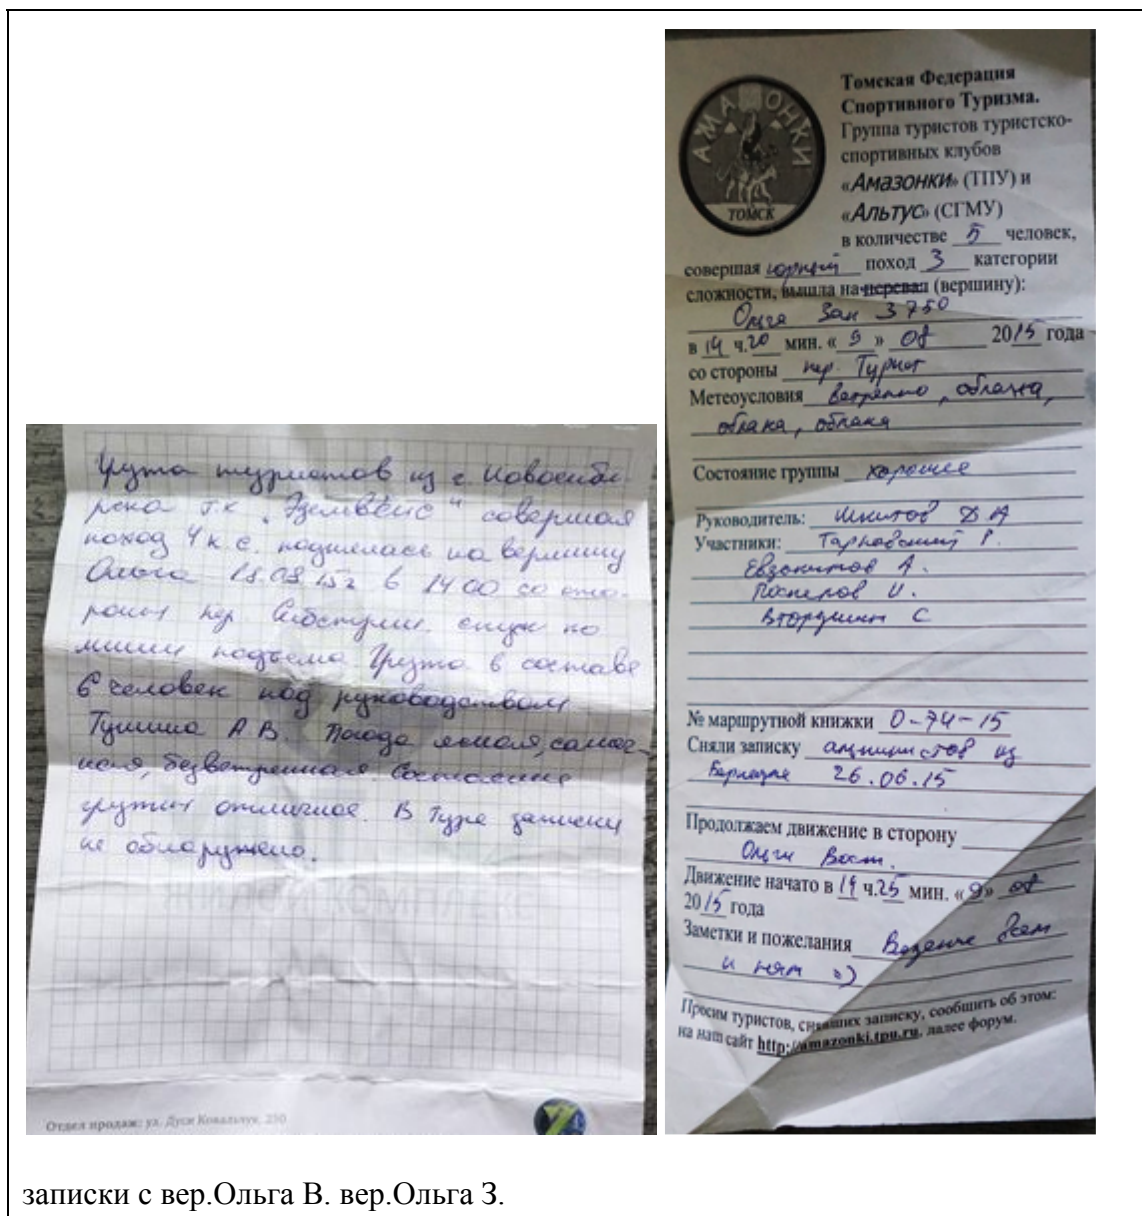 Группа туристов из г. Новосиби
рска т.к. „Эдельвейс" совершая
поход 4 к.с. поднялась на вершину
Ольга 15г. в 14 00 со сто-
роны пер.
линии подъема. Группа в составе
6 человек под руководством
А.В. Погода ясная, солнеч-
ная, безветренная. Состояние
группы отличное. В Туре записки
не обнаружено.
Отдел продаж: ул. Дуси Ковальчук, 250
АМАЗОНКИ
ТОМСК
Томская Федерация
Спортивного Туризма.
Группа туристов туристско-
спортивных клубов
«Амазонки» (ТПУ) и
«Альтус» (СГМУ)
в количестве 5 человек,
совершая горный поход 3 категории
сложности, вышла на перевал (вершину):
Ольга Зап 3750
в 14 ч. 20 мин. « 9 » 08 2015 года
со стороны пер. Турист
Метеоусловия ветренно, облака,
облака, облака
Состояние группы хорошее
Руководитель: Шкитов Д А
Участники: Тарновский Г.
А.
Поспелов И.
Вторушин С
№ маршрутной книжки 0-74-15
Сняли записку альпинистов из
26.06.15
Продолжаем движение в сторону
Ольги Вост.
Движение начато в 14 ч.25 мин. «9» 08
2015 года
Заметки и пожелания Везения всем
и нам :)
Просим туристов, снявших записку, сообщить об этом:
на наш сайт http://amazonki.tpu.ru, далее форум.
записки с вер.Ольга В. вер.Ольга З.